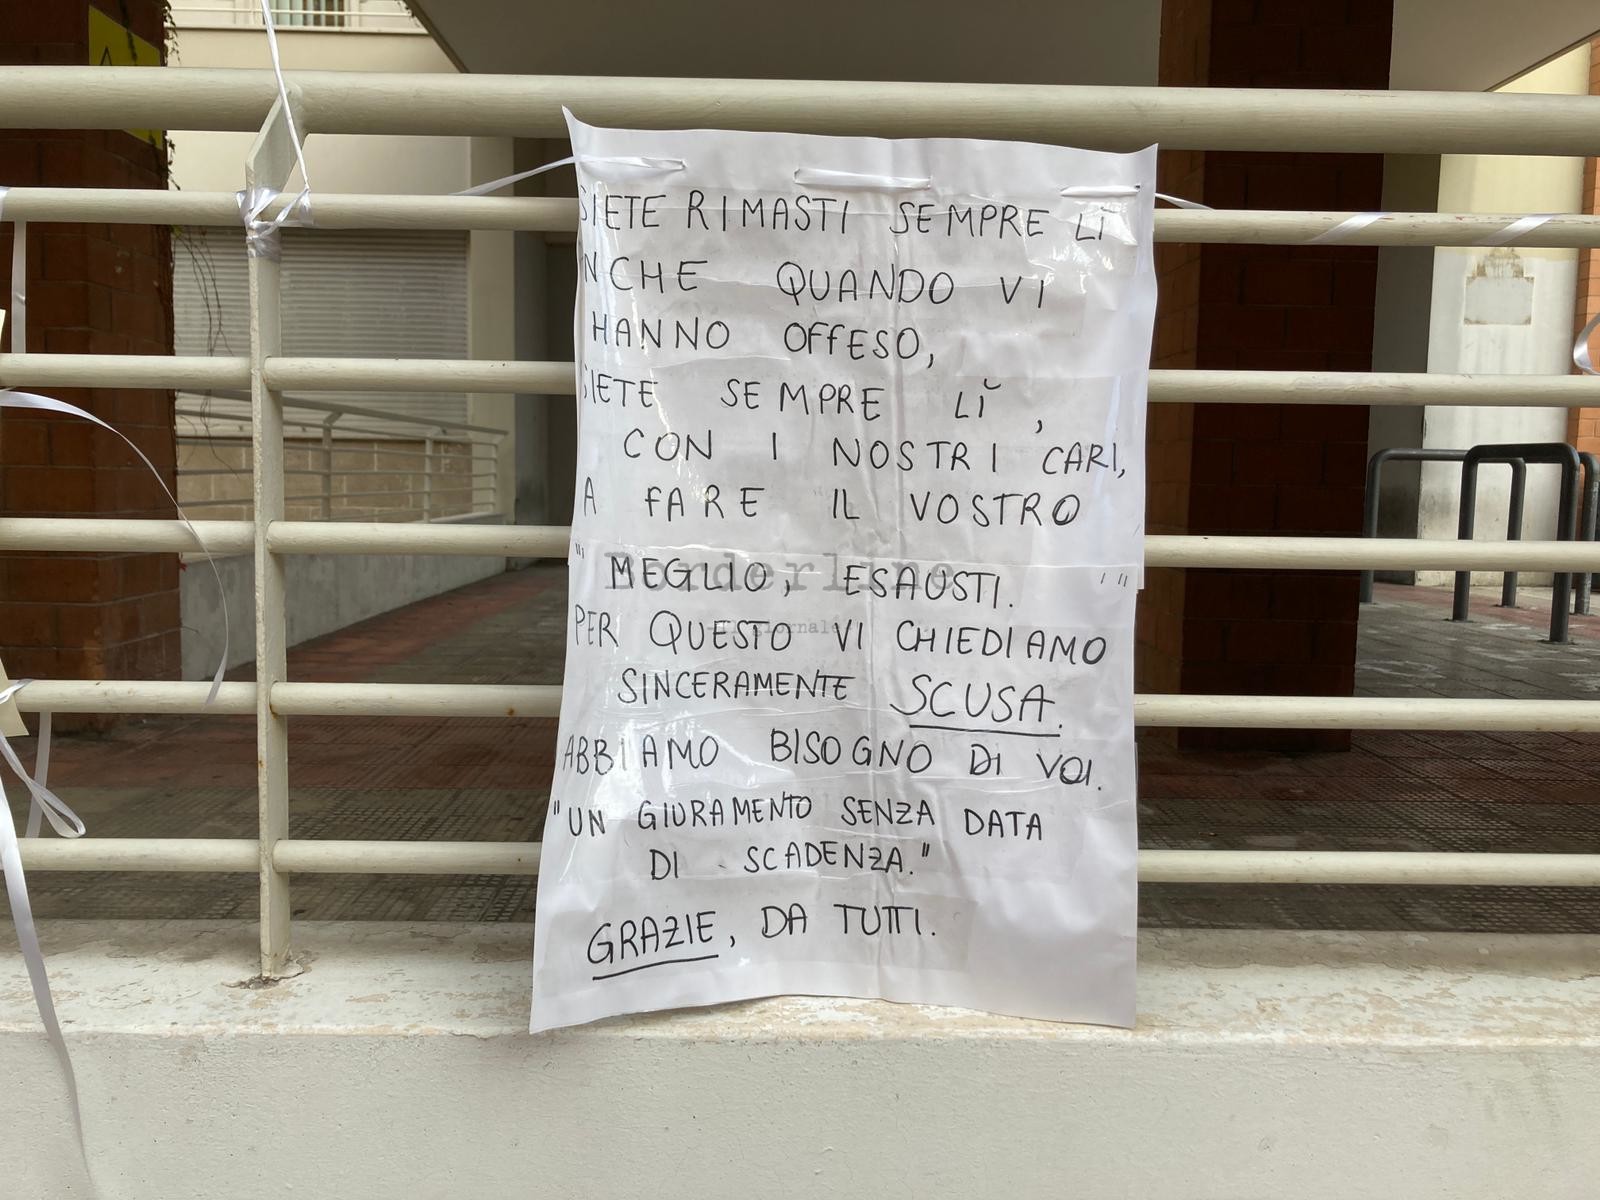 SIETE RIMASTI SEMPRE LÌ
NCHE QUANDO VI
HANNO OFFESO,
SIETE SEMPRE LÌ,
CON I NOSTRI CARI,
A FARE IL VOSTRO
"MEGLIO, ESAUSTI. "
PER QUESTO VI CHIEDIAMO
SINCERAMENTE SCUSA.
ABBIAMO BISOGNO DI VOI.
"UN GIURAMENTO SENZA DATA
DI SCADENZA."
GRAZIE, DA TUTTI.
Borderline
il giornale